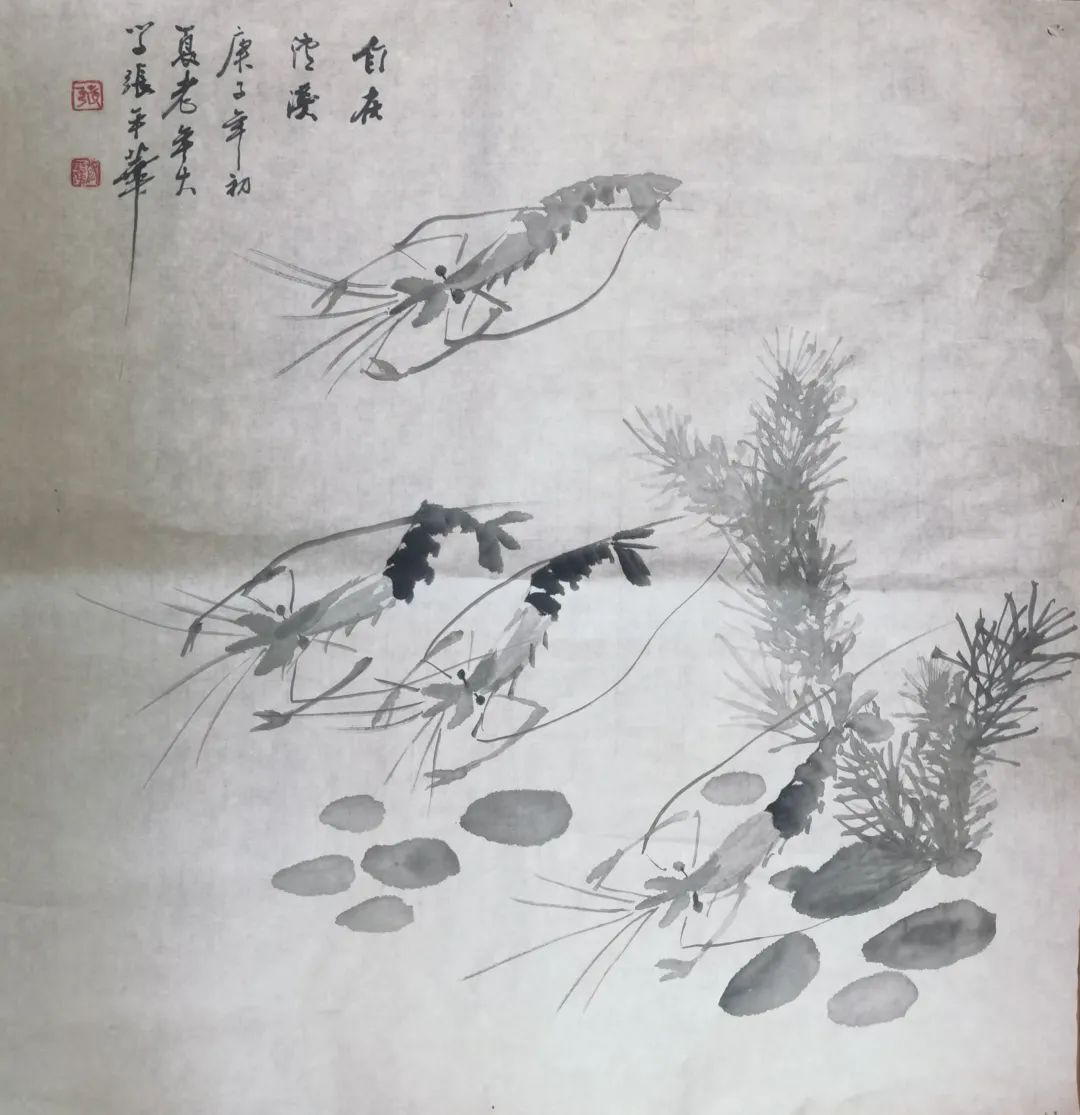 自在
清溪
庚子年初
夏老年大
学張平華